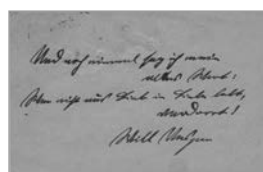 Und noch einmal sag ich mein
altes Wort:
Wer nicht aus Liebe in Liebe lebt,
verdorrt!
Will Vesper